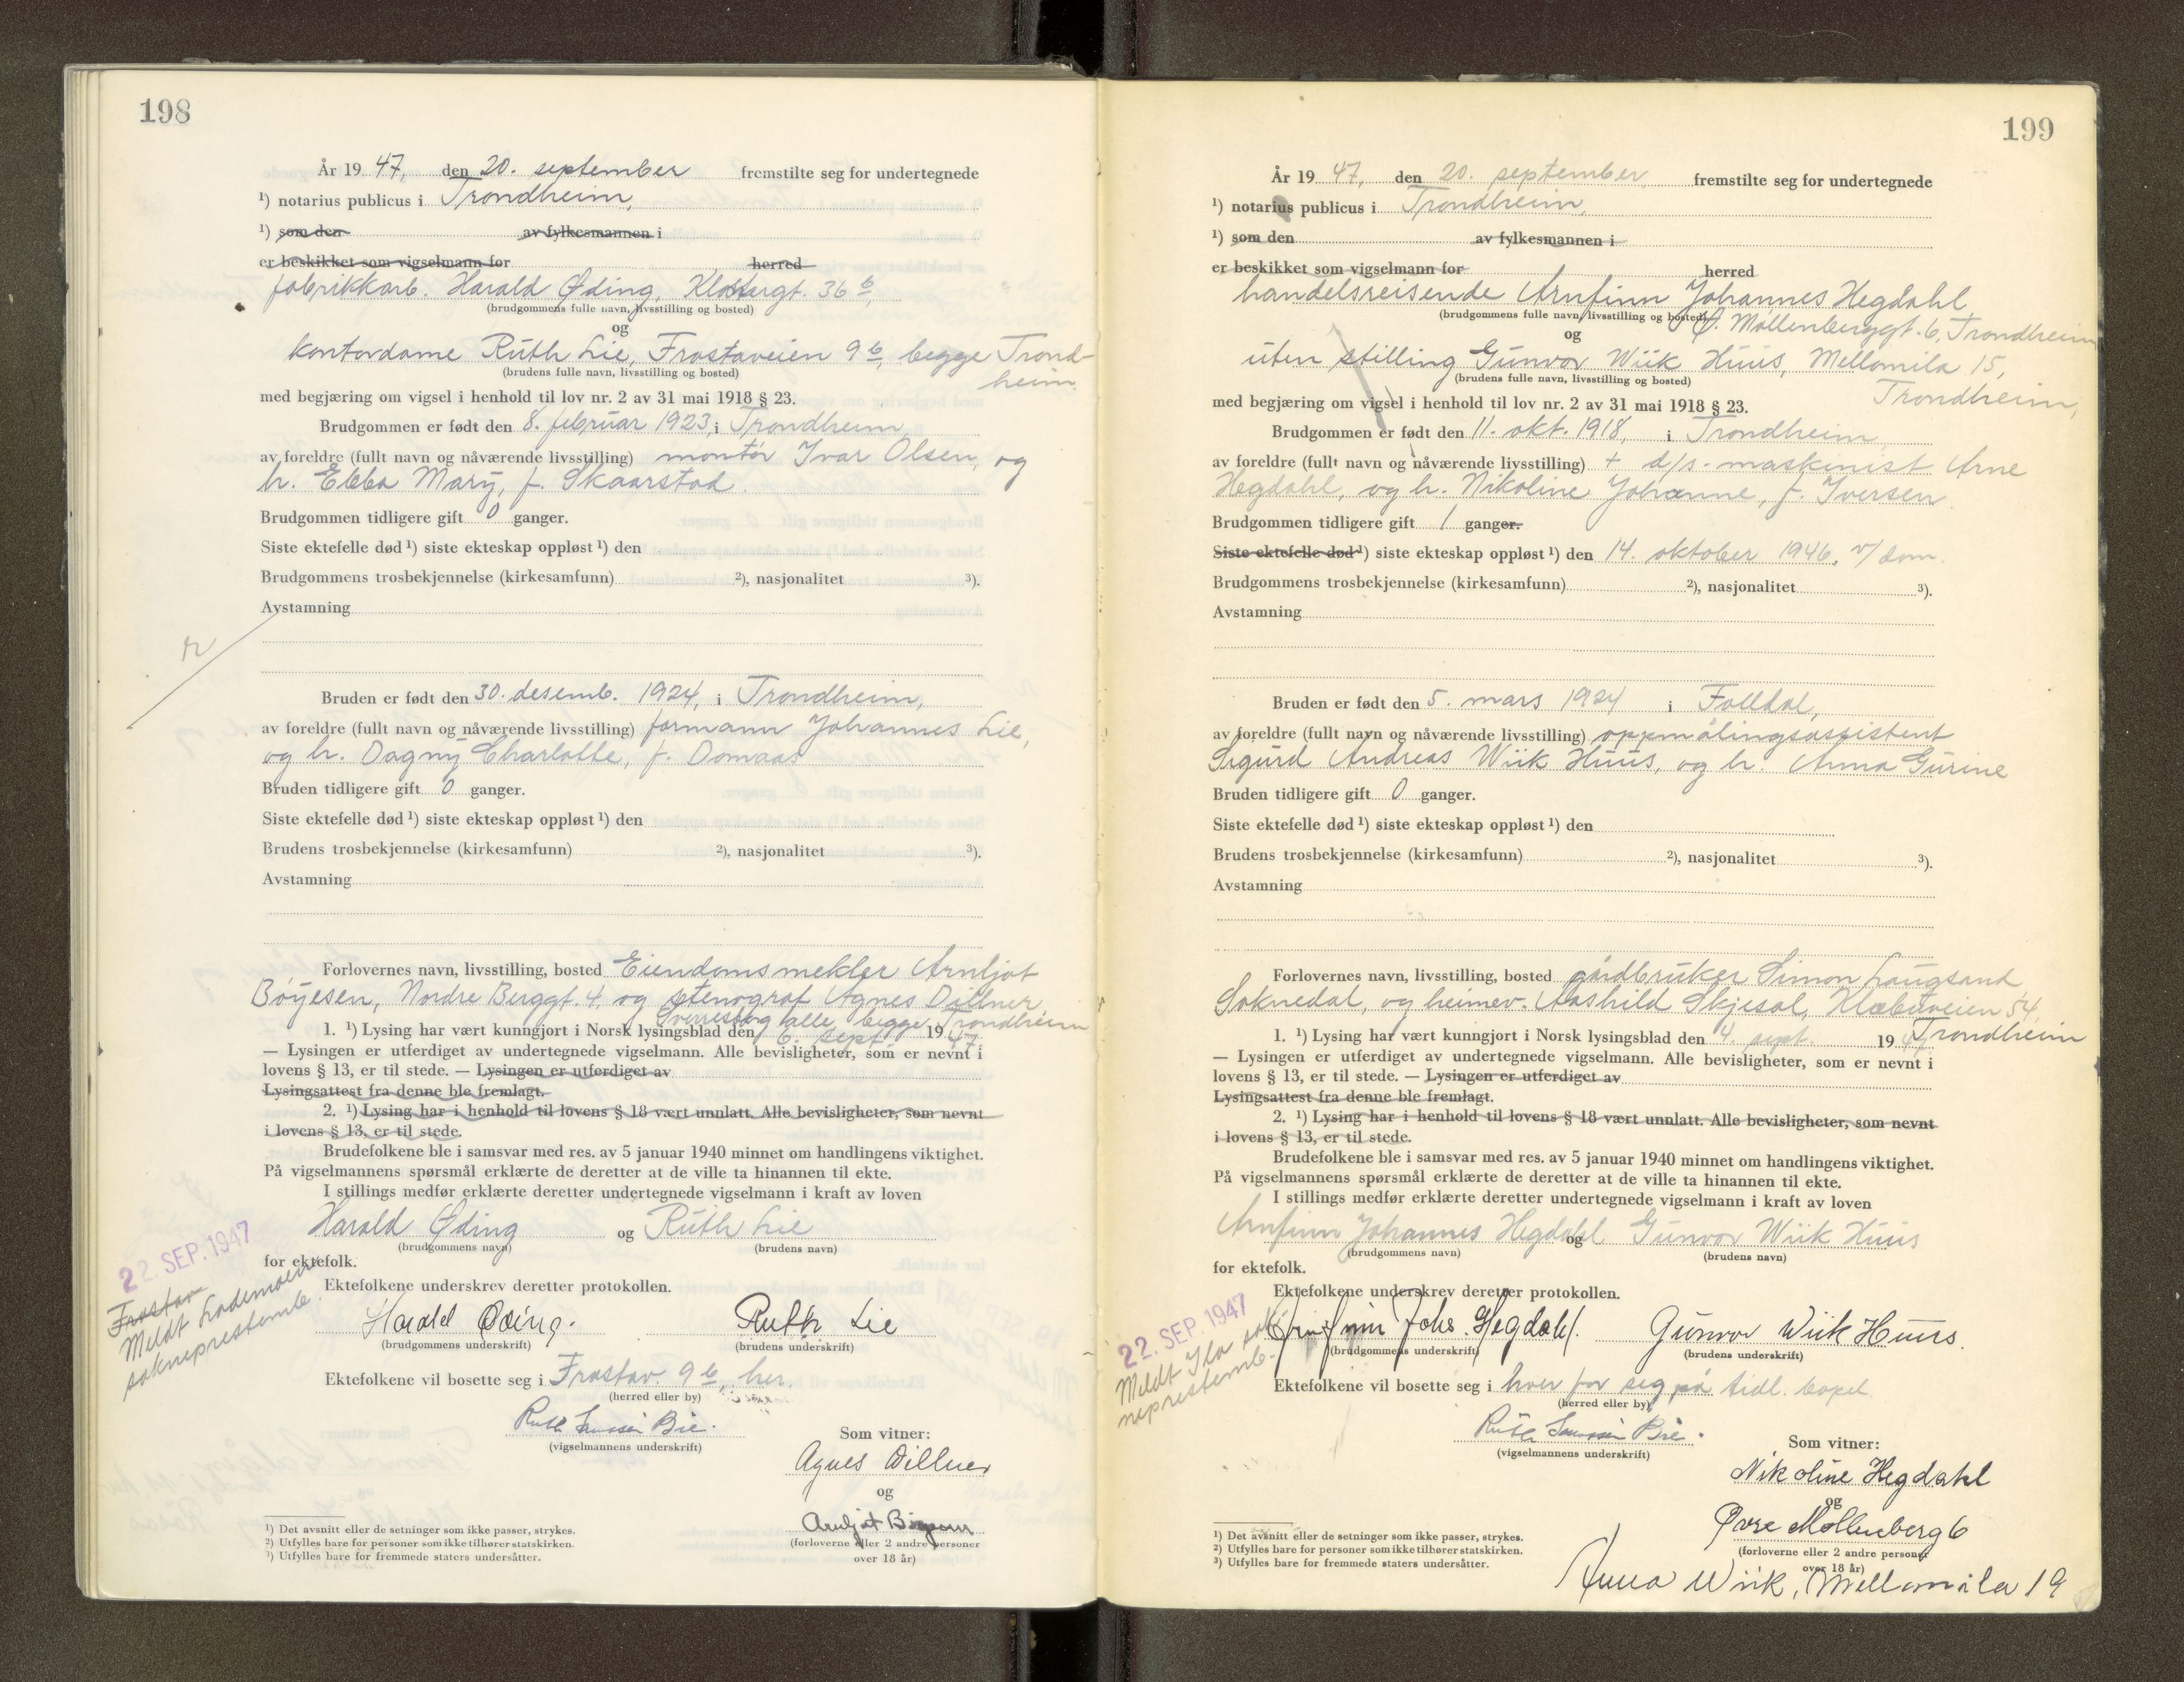 198
År 19 47, den 20. september fremstilte seg for undertegnede
¹) notarius publicus i Trondheim,
¹) som den av fylkesmannen i
er beskikket som vigselmann for herred
fabrikkarb. Harald Øding, Klostergt. 36 b,
(brudgommens fulle navn, livsstilling og bosted)
og
kontordame Ruth Lie, Frostaveien 9 b, begge Trond-
heim.
(brudens fulle navn, livsstilling og bosted)
med begjæring om vigsel i henhold til lov nr. 2 av 31 mai 1918 § 23.
Brudgommen er født den 8. februar 1923, i Trondheim,
av foreldre (fullt navn og nåværende livsstilling) montør Ivar Olsen, og
h. Ebba Mary, f. Skaarstad.
Brudgommen tidligere gift 0 ganger.
Siste ektefelle død ¹) siste ekteskap oppløst ¹) den
Brudgommens trosbekjennelse (kirkesamfunn) ²), nasjonalitet ³).
Avstamning
Bruden er født den 30. desemb. 1924, i Trondheim,
av foreldre (fullt navn og nåværende livsstilling) formann Johannes Lie,
og h. Dagny Charlotte, f. Domaas
Bruden tidligere gift 0 ganger.
Siste ektefelle død ¹) siste ekteskap oppløst ¹) den
Brudens trosbekjennelse (kirkesamfunn) ²), nasjonalitet ³).
Avstamning
Forlovernes navn, livsstilling, bosted Eiendomsmekler Arnljot
Böyesen, Nordre Berggt. 4, og stenograf Agnes Dillner
Sverresborg alle, begge Trondheim
1. ¹) Lysing har vært kunngjort i Norsk lysingsblad den 6. sept. 19 47.
— Lysingen er utferdiget av undertegnede vigselmann. Alle bevisligheter, som er nevnt i
lovens § 13, er til stede. — Lysingen er utferdiget av
Lysingsattest fra denne ble fremlagt.
2. ¹) Lysing har i henhold til lovens § 18 vært unnlatt. Alle bevisligheter, som nevnt
i lovens § 13, er til stede.
Brudefolkene ble i samsvar med res. av 5 januar 1940 minnet om handlingens viktighet.
På vigselmannens spørsmål erklærte de deretter at de ville ta hinannen til ekte.
I stillings medfør erklærte deretter undertegnede vigselmann i kraft av loven
Harald Øding og Ruth Lie
(brudgommens navn) (brudens navn)
for ektefolk.
22. SEP. 1947
Frostav
Meldt Lademoens
sokneprestemb.
Ektefolkene underskrev deretter protokollen.
Harald Øding. Ruth Lie
(brudgommens underskrift) (brudens underskrift)
Ektefolkene vil bosette seg i Frostav. 9 b, her.
(herred eller by)
(vigselmannens underskrift)
Som vitner:
Agnes Dillner
og
Arnljot Böyesen
(forloverne eller 2 andre personer
over 18 år)
¹) Det avsnitt eller de setninger som ikke passer, strykes.
²) Utfylles bare for personer som ikke tilhører statskirken.
³) Utfylles bare for fremmede staters undersåtter.
199
År 19 47, den 20. september fremstilte seg for undertegnede
¹) notarius publicus i Trondheim,
¹) som den av fylkesmannen i
er beskikket som vigselmann for herred
handelsreisende Arnfinn Johannes Hegdahl
(brudgommens fulle navn, livsstilling og bosted) Ø. Møllenberggt. 6, Trondheim
og
uten stilling Gunvor Wiik Huus, Mellomila 15,
(brudens fulle navn, livsstilling og bosted)
Trondheim,
med begjæring om vigsel i henhold til lov nr. 2 av 31 mai 1918 § 23.
Brudgommen er født den 11. okt. 1918, i Trondheim
av foreldre (fullt navn og nåværende livsstilling) + d/s-maskinist Arne
Hegdahl, og h. Nikoline Johanne, f. Iversen
Brudgommen tidligere gift 1 ganger.
Siste ektefelle død ¹) siste ekteskap oppløst ¹) den 14. oktober 1946, v/dom.
Brudgommens trosbekjennelse (kirkesamfunn) ²), nasjonalitet ³).
Avstamning
Bruden er født den 5. mars 1924 i Folldal,
av foreldre (fullt navn og nåværende livsstilling) oppmålingsassistent
Sigurd Andreas Wiik Huus, og h. Anna Gurine
Bruden tidligere gift 0 ganger.
Siste ektefelle død ¹) siste ekteskap oppløst ¹) den
Brudens trosbekjennelse (kirkesamfunn) ²), nasjonalitet ³).
Avstamning
Forlovernes navn, livsstilling, bosted gårdbruker Simon Laugsand
Soknedal, og heimev. Aashild Skjesol, Klæbuveien 54,
Trondheim
1. ¹) Lysing har vært kunngjort i Norsk lysingsblad den 4. sept. 19 47
— Lysingen er utferdiget av undertegnede vigselmann. Alle bevisligheter, som er nevnt i
lovens § 13, er til stede. — Lysingen er utferdiget av
Lysingsattest fra denne ble fremlagt.
2. ¹) Lysing har i henhold til lovens § 18 vært unnlatt. Alle bevisligheter, som nevnt
i lovens § 13, er til stede.
Brudefolkene ble i samsvar med res. av 5 januar 1940 minnet om handlingens viktighet.
På vigselmannens spørsmål erklærte de deretter at de ville ta hinannen til ekte.
I stillings medfør erklærte deretter undertegnede vigselmann i kraft av loven
Arnfinn Johannes Hegdahl og Gunvor Wiik Huus
(brudgommens navn) (brudens navn)
for ektefolk.
22. SEP. 1947
Meldt Ila sok-
neprestemb.
Ektefolkene underskrev deretter protokollen.
Arnfinn Johs. Hegdahl. Gunvor Wiik Huus.
(brudgommens underskrift) (brudens underskrift)
Ektefolkene vil bosette seg i hver for seg på tidl. bopel.
(herred eller by)
(vigselmannens underskrift)
Som vitner:
Nikoline Hegdahl
og
Øvre Møllenberg 6
(forloverne eller 2 andre personer
over 18 år)
Anna Wiik, Mellomila 19
¹) Det avsnitt eller de setninger som ikke passer, strykes.
²) Utfylles bare for personer som ikke tilhører statskirken.
³) Utfylles bare for fremmede staters undersåtter.